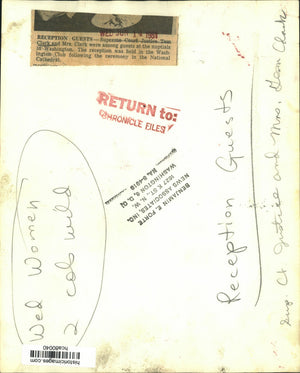 WED JUN 16 1954
RECEPTION GUESTS—Supreme Court Justice Tom
Clark and Mrs. Clark were among guests at the nuptials
in Washington. The reception was held in the Wash-
ington Club following the ceremony in the National
Cathedral.
RETURN to:
CHRONICLE FILES
BENJAMIN E. FORTE
NEWS ASSOCIATES, INC.
WASHINGTON 6, D. C.
Wed Women
2 cols wild
Reception Guests
Sup Ct Justice and Mrs. Tom Clark
historicimages.com
hca60040